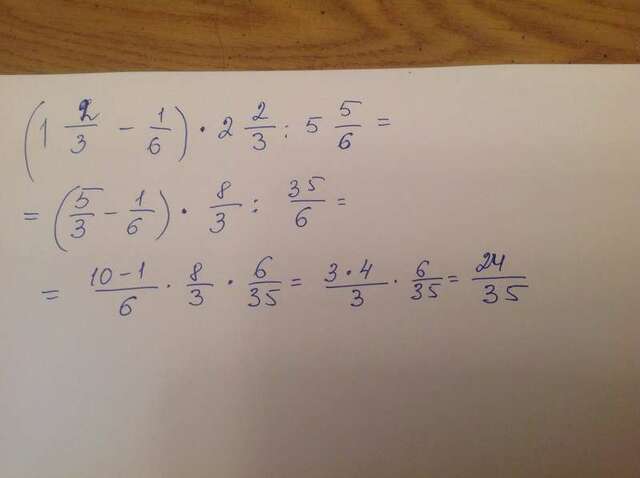 (1 2/3 - 1/6) · 2 2/3 : 5 5/6 =
= (5/3 - 1/6) · 8/3 : 35/6 =
= 10-1/6 · 8/3 · 6/35 = 3·4/3 · 6/35 = 24/35